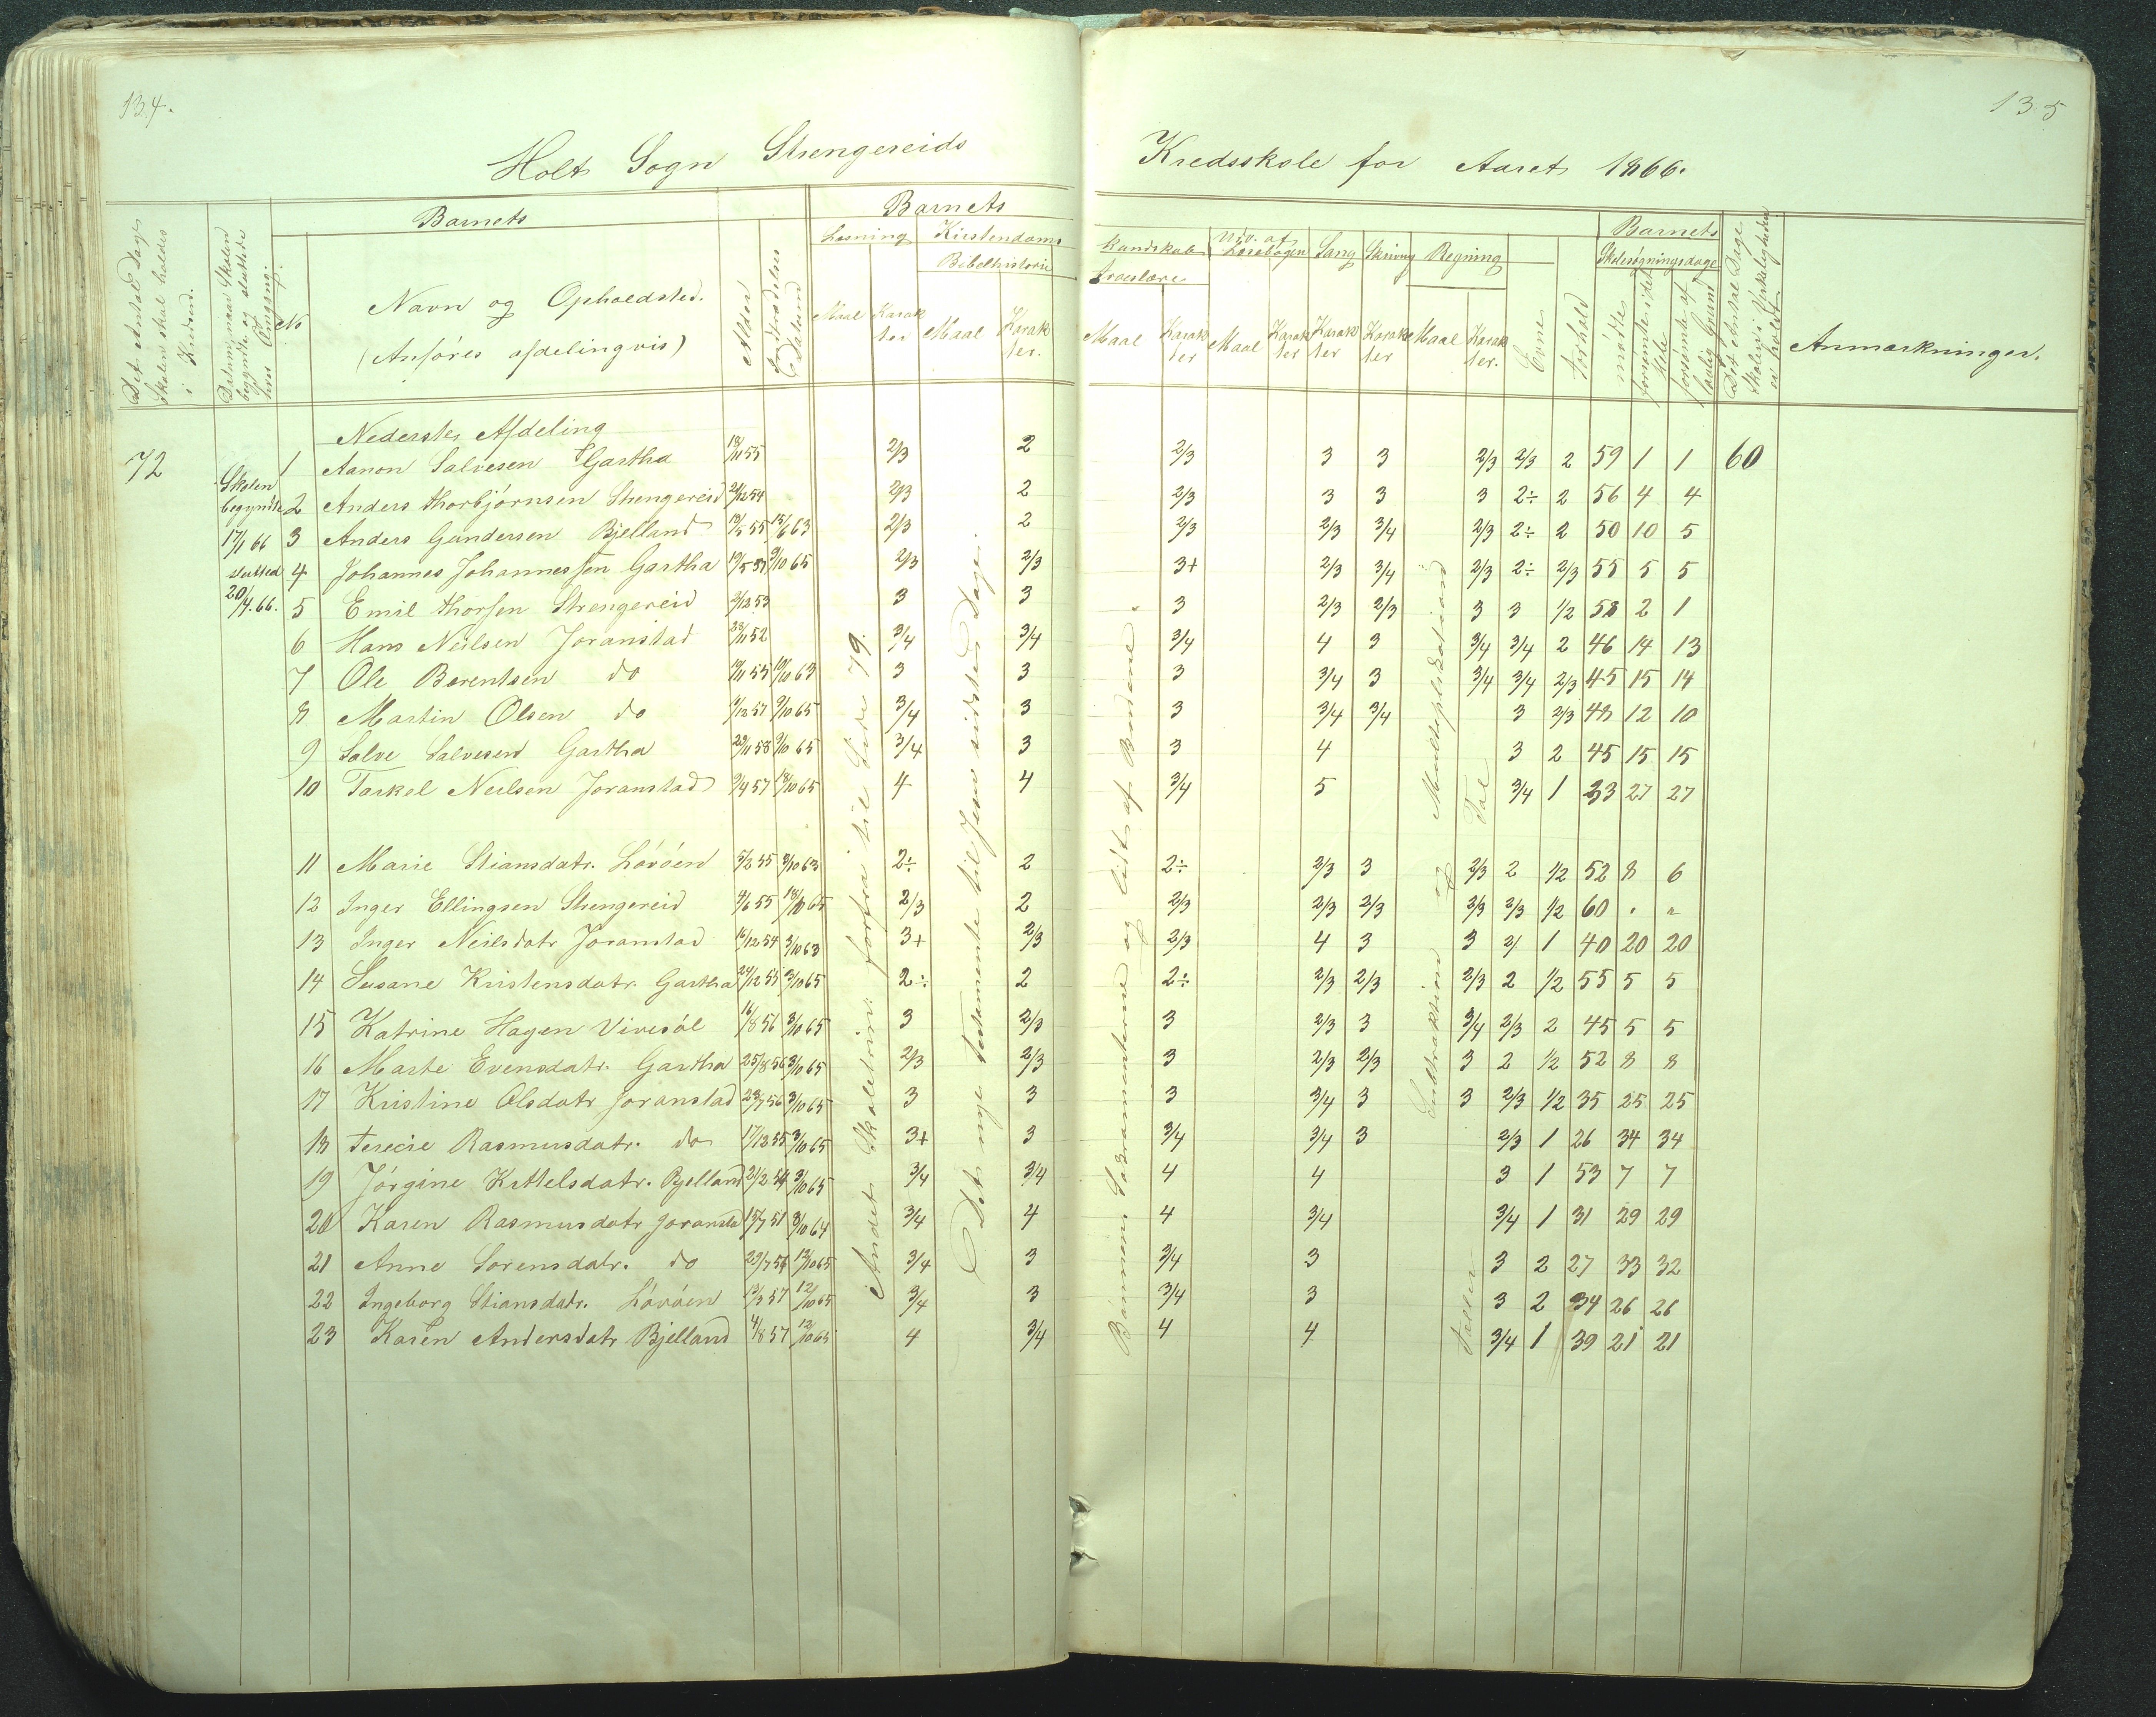 134.
Holt Sogn Strengereids
Barnets
Barnets
Læsning Kristendoms
Bibelhistorie
Det Antal Dage Skolen skal holdes i Kredsen.
Datum, naar Skolen begyndte og sluttede hver Omgang.
No
Navn og Opholdsted.
(Anføres afdelingvis)
Alder
Indtrædelses Datum
Maal Karakter Maal Karakter.
Nederste Afdeling
72
Skolen begyndte 17/1 66 slutted 20/4. 66.
1 Aanon Salvesen Gartha 18/11 55 2/3 2
2 Anders Thorbjørnsen Strengereid 24/12 54 2/3 2
3 Anders Gundersen Bjelland 13/5 55 15/6 63 2/3 2
4 Johannes Johannessen Gartha 2/3 2/3
5 Emil Thorsen Strengereid 2/12 53 3 3
6 Hans Neilsen Joranstad 28/11 52 3/4 3/4
7 Ole Berentsen do 3 3
8 Martin Olsen do 3/4 3
9 Salve Salvesen Gartha 3/4 3
10 Tarkel Neilsen Joranstad 9/4 57 18/10 65 4 4
11 Marie Stiansdatr. Løvøen 3/10 63 2÷ 2
12 Inger Ellingsen Strengereid 18/10 65 2/3 2
13 Inger Neilsdatr Joranstad 16/12 54 3/10 63 3+ 2/3
14 Susane Kristensdatr. Gartha 24/12 55 3/10 65 2÷ 2
15 Katrine Hagen Vivesøl 16/8 56 3/10 65 3 2/3
16 Marte Evensdatr. Gartha 25/8 56 3/10 65 2/3 2/3
17 Kristine Olsdatr Joranstad 3/10 65 3 3
18 Terecie Rasmusdatr. do 17/12 55 3/10 65 3+ 3
19 Jørgine Kittelsdatr. Bjelland 21/2 54 3/10 65 3/4 3/4
20 Karen Rasmusdatr Joranstad 3/10 64 3/4 4
21 Anne Sørensdatr. do 3/4 3
22 Ingeborg Stiansdatr. Løvøen 13/3 57 12/10 65 3/4 3
23 Karen Andersdatr Bjelland 4/8 57 12/10 65 4 3/4
Andet Skoletrin. forfra til Side 79.
Det nye Testamente til Jesu sidste Dage.
135
Kredsskole for Aaret 1866.
Barnets
Kundskab Udv. af Læsebogen Sang Skrivng Regning
Troeslære
Skolesøgningsdage
Maal Karakter Maal Karakter Karakter Karakter Maal Karakter.
Evne
Forhold
mødte
forsømte i det hele
forsømte af lovlig Grund
Det Antal Dage Skolen i Virkeligheden er holdt
Anmærkninger.
2/3 3 3 2/3 2/3 2 59 1 1 60
2/3 3 3 3 2÷ 2 56 4 4
2/3 2/3 3/4 2/3 2÷ 2 50 10 5
3+ 2/3 3/4 2/3 2÷ 2/3 55 5 5
3 2/3 2/3 3 3 1/2 58 2 1
3/4 4 3 3/4 3/4 2 46 14 13
3 3/4 3 3/4 3/4 2/3 45 15 14
3 3/4 3/4 3 2/3 48 12 10
3 4 3 2 45 15 15
3/4 5 3/4 1 33 27 27
2÷ 2/3 3 2/3 2 1/2 52 8 6
2/3 2/3 2/3 2/3 2/3 1/2 60 . "
2/3 4 3 3 2/ 1 40 20 20
2÷ 2/3 2/3 2/3 2 1/2 55 5 5
3 2/3 3 3/4 2/3 2 45 5 5
3 2/3 2/3 3 2 1/2 52 8 8
3 3/4 3 3 2/3 1/2 35 25 25
3/4 3/4 3 2/3 1 26 34 34
4 4 3 1 53 7 7
4 3/4 3/4 1 31 29 29
3/4 3 3 2 27 33 32
3/4 3 3 2 34 26 26
4 4 3/4 1 39 21 21
Bønnen, Sakramenterne og lidt af Budene.
Subtraksion og Multiplikation
Tæller Tal